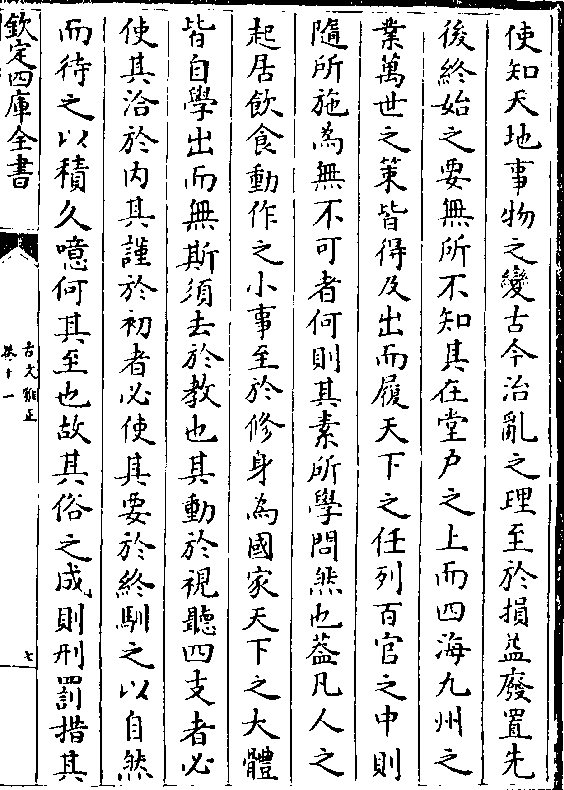 使知天地事物之變古今治亂之理至於損益廢置先
後終始之要無所不知其在堂户之上而四海九州之
業萬世之策皆得及出而履天下之任列百官之中則
隨所施為無不可者何則其素所學問然也葢凡人之
起居飲食動作之小事至於修身為國家天下之大體
皆自學出而無斯須去於教也其動於視聽四支者必
使其洽於内其謹於初者必使其要於終馴之以自然
而待之以積久噫何其至也故其俗之成則刑罰措其
欽定四庫全書
古文雅正
卷十一
七